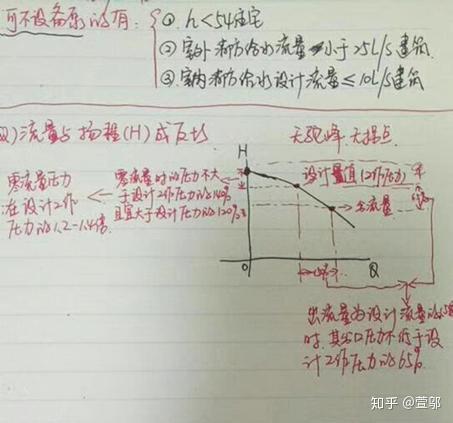 可不设备泵的有: ①. h<54住宅
②室外消防给水流量小于25L/s建筑
③室内消防给水设计流量≤10L/s建筑
Q)流量与扬程(H)成反比
无驼峰 无拐点
H
零流量压力
在设计工作
压力的1.2-1.4倍.
零流量时的压力不大
于设计工作压力的140%
且宜大于设计压力的120%
设计量值(工作压力)
出流量
O
Q
出流量为设计流量的
时,其出口压力不低于设
计工作压力的65%
知乎 @萱邬